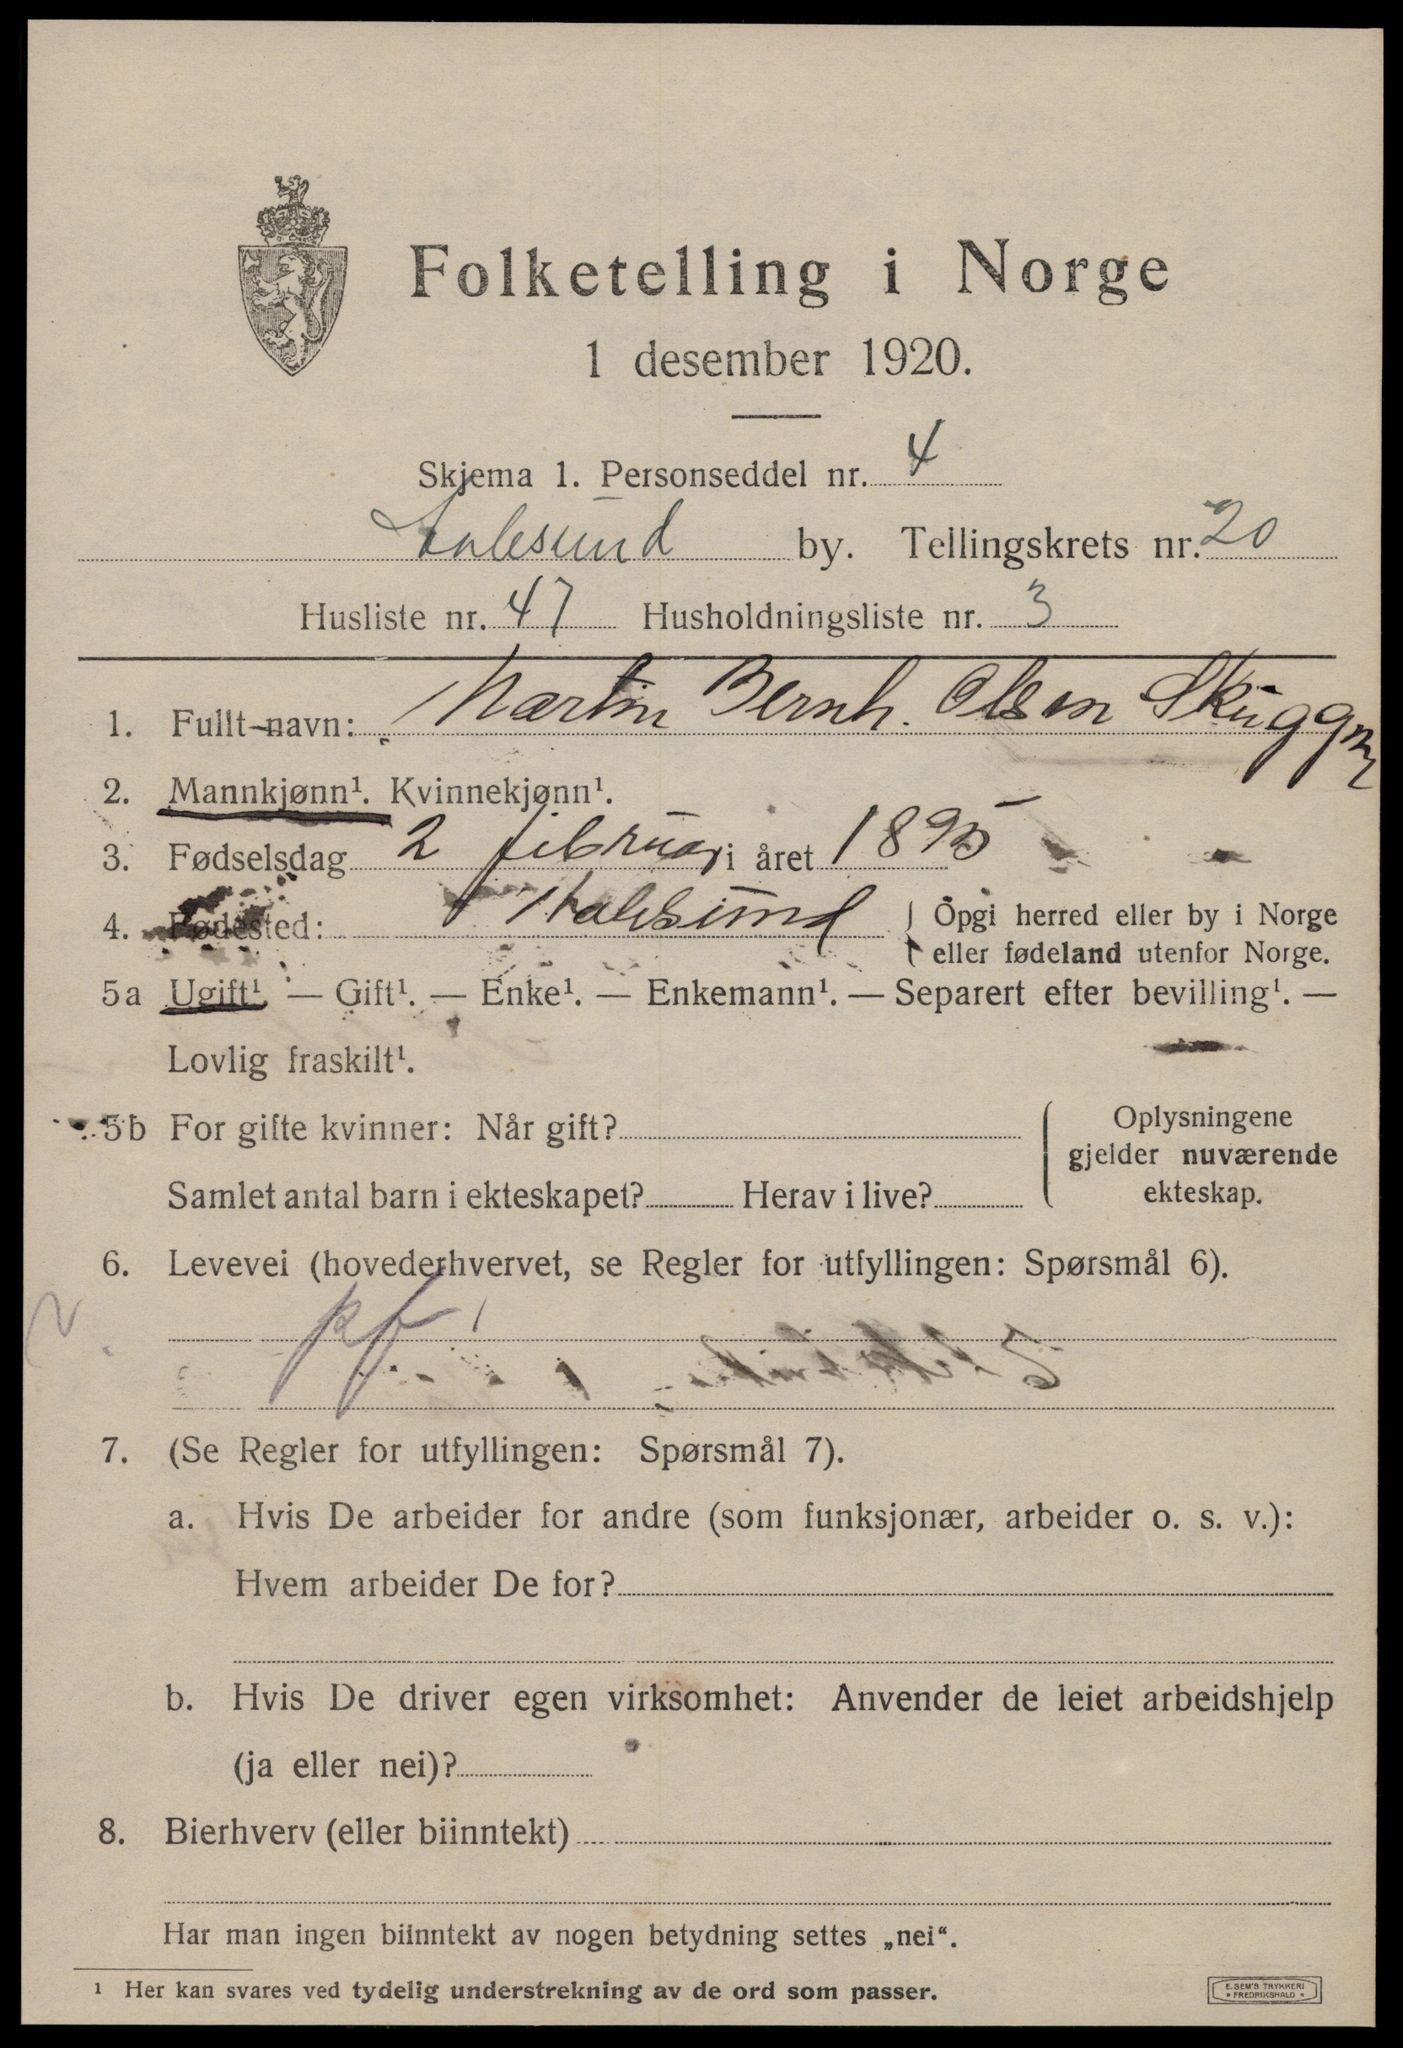 Folketelling i Norge
1 desember 1920.
Skjema 1. Personseddel nr. 4
Aalesund by. Tellingskrets nr. 20
Husliste nr. 47 Husholdningsliste nr. 3
1. Fullt navn: Martin Bernh. Olsen
2. Mannkjønn¹. Kvinnekjønn¹.
3. Fødselsdag 2 februar i året 1895
4. Fødested: Aalesund Opgi herred eller by i Norge
eller fødeland utenfor Norge.
5a Ugift¹. — Gift¹. — Enke¹. — Enkemann¹. — Separert efter bevilling¹. —
Lovlig fraskilt¹.
5b For gifte kvinner: Når gift?
Samlet antal barn i ekteskapet? Herav i live?
Oplysningene
gjelder nuværende
ekteskap.
6. Levevei (hovederhvervet, se Regler for utfyllingen: Spørsmål 6).
pf
7. (Se Regler for utfyllingen: Spørsmål 7).
a. Hvis De arbeider for andre (som funksjonær, arbeider o. s. v.):
Hvem arbeider De for?
b. Hvis De driver egen virksomhet: Anvender de leiet arbeidshjelp
(ja eller nei)?
8. Bierhverv (eller biinntekt)
Har man ingen biinntekt av nogen betydning settes „nei“.
¹ Her kan svares ved tydelig understrekning av de ord som passer.
E. SEM'S TRYKKERI
• FREDRIKSHALD •